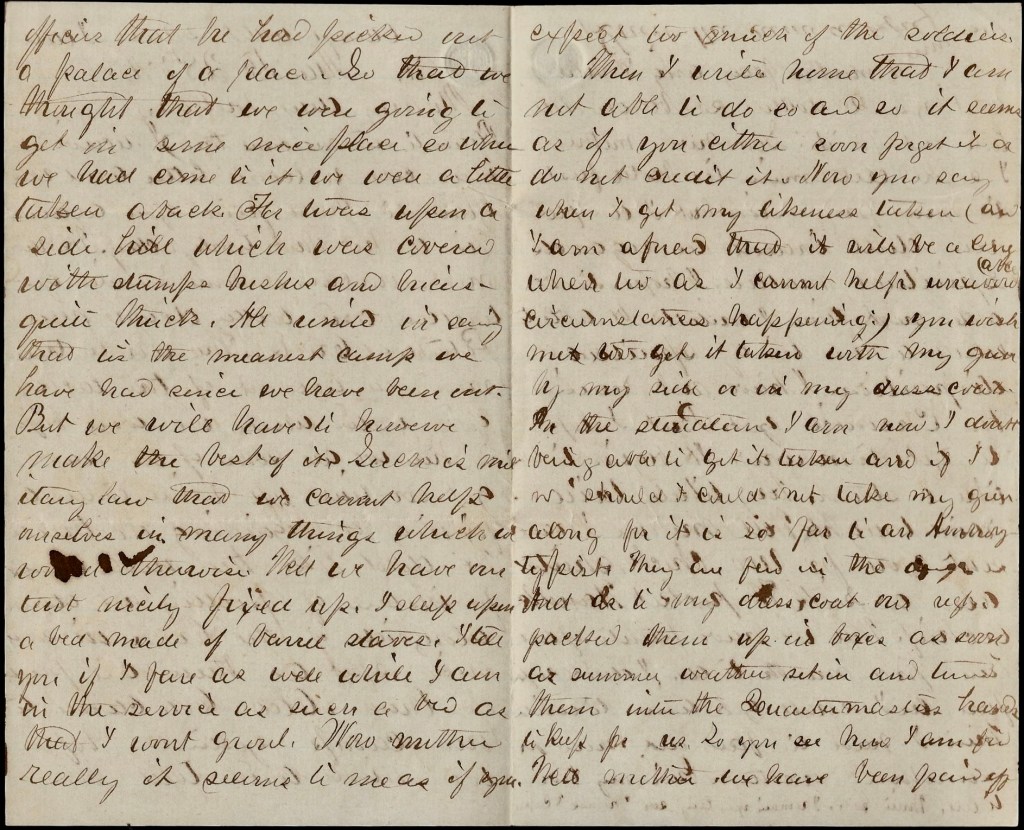 officers that he had picked out
a palace of a place. So that we
thought that we were going to
get in some nice place so when
we had come to it we were a little
taken aback. For twas upon a
side hill which was covered
with stumps bushes and briars
quite thick. All unite in saying
that is the meanest camp we
have had since we have been out.
But we will have to however
make the best of it. Such is mil
itary law that we cannot help
ourselves in many things which we
would otherwise. Well we have our
tent nicely fixed up. I sleep upon
a bed made of barrel staves. I tell
you if I fare as well while I am
in the service as such a bed as
that I wont growl. Now mother
really it seems to me as if you
expect too much of the soldiers.
When I write home that I am
not able to do so and so it seems
as if you either soon forget it or
do not credit it. Now you say
when I get my likeness taken (and
I am afraid that it will be a long
(above
when too as I cannot help
circumstances happening.) you wish
me to get it taken with my gun
by my side or in my dress coat.
In the situation I am now I doubt
being able to get it taken and if I
should I could not take my gun
along for it is so far to an
They are few in the
And as to my dress coat our regt.
packed them up in boxes as soon
as summer weather set in and turned
them into the Quartermasters hands
to keep for us. So you see how I am
Well mother we have been paid off